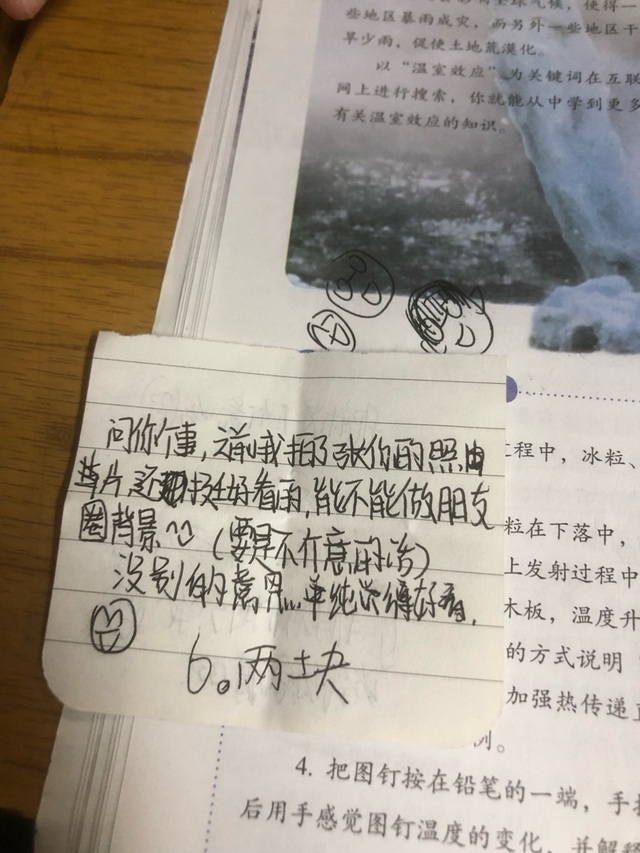 些地区暴雨成灾，而另外一些地区干
旱少雨，促使土地荒漠化。
以“温室效应”为关键词在互联
网上进行搜索，你就能从中学到更多
有关温室效应的知识。
问你个事，之前我拍了张你的照
片，还挺好看的，能不能做朋友
圈背景
(要是不介意的话)
没别的意思...单纯觉得好看，
6。两块
程中，冰粒、
粒在下落中，
上发射过程中
木板，温度升
的方式说明
加强热传递
例。
4. 把图钉按在铅笔的一端，手
后用手感觉图钉温度的变化，并解释